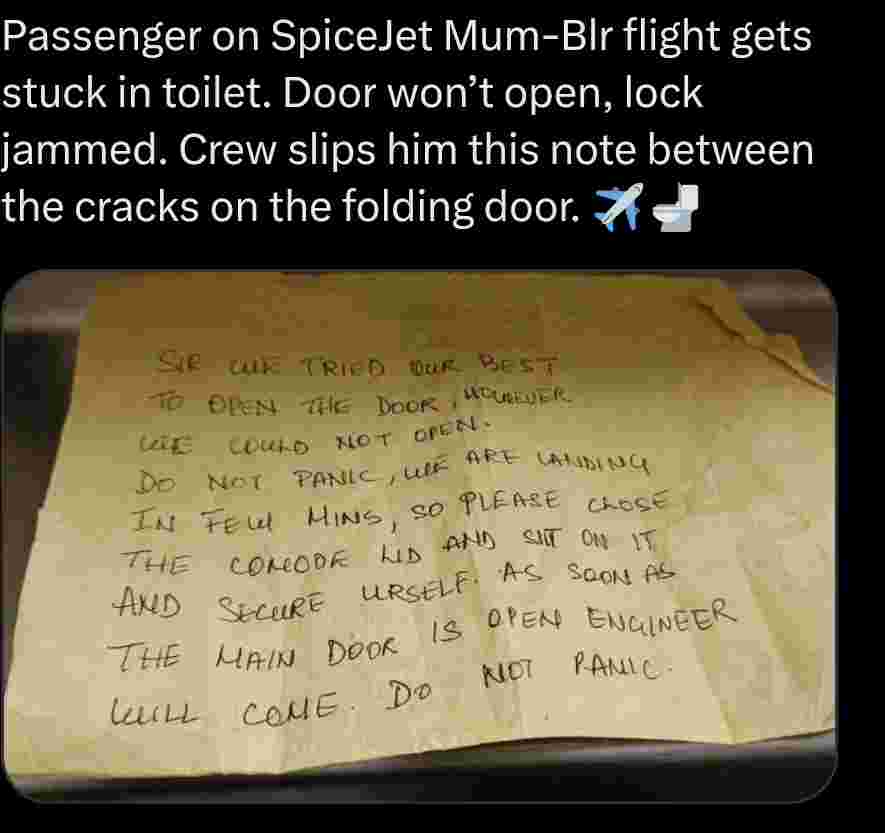 Passenger on SpiceJet Mum-Blr flight gets
stuck in toilet. Door won’t open, lock
jammed. Crew slips him this note between
the cracks on the folding door. ✈️🚽
SIR WE TRIED OUR BEST
TO OPEN THE DOOR, HOWEVER
WE COULD NOT OPEN.
DO NOT PANIC, WE ARE LANDING
IN FEW MINS, SO PLEASE CLOSE
THE COMODE LID AND SIT ON IT
AND SECURE URSELF. AS SOON AS
THE MAIN DOOR IS OPEN ENGINEER
WILL COME. DO NOT PANIC.